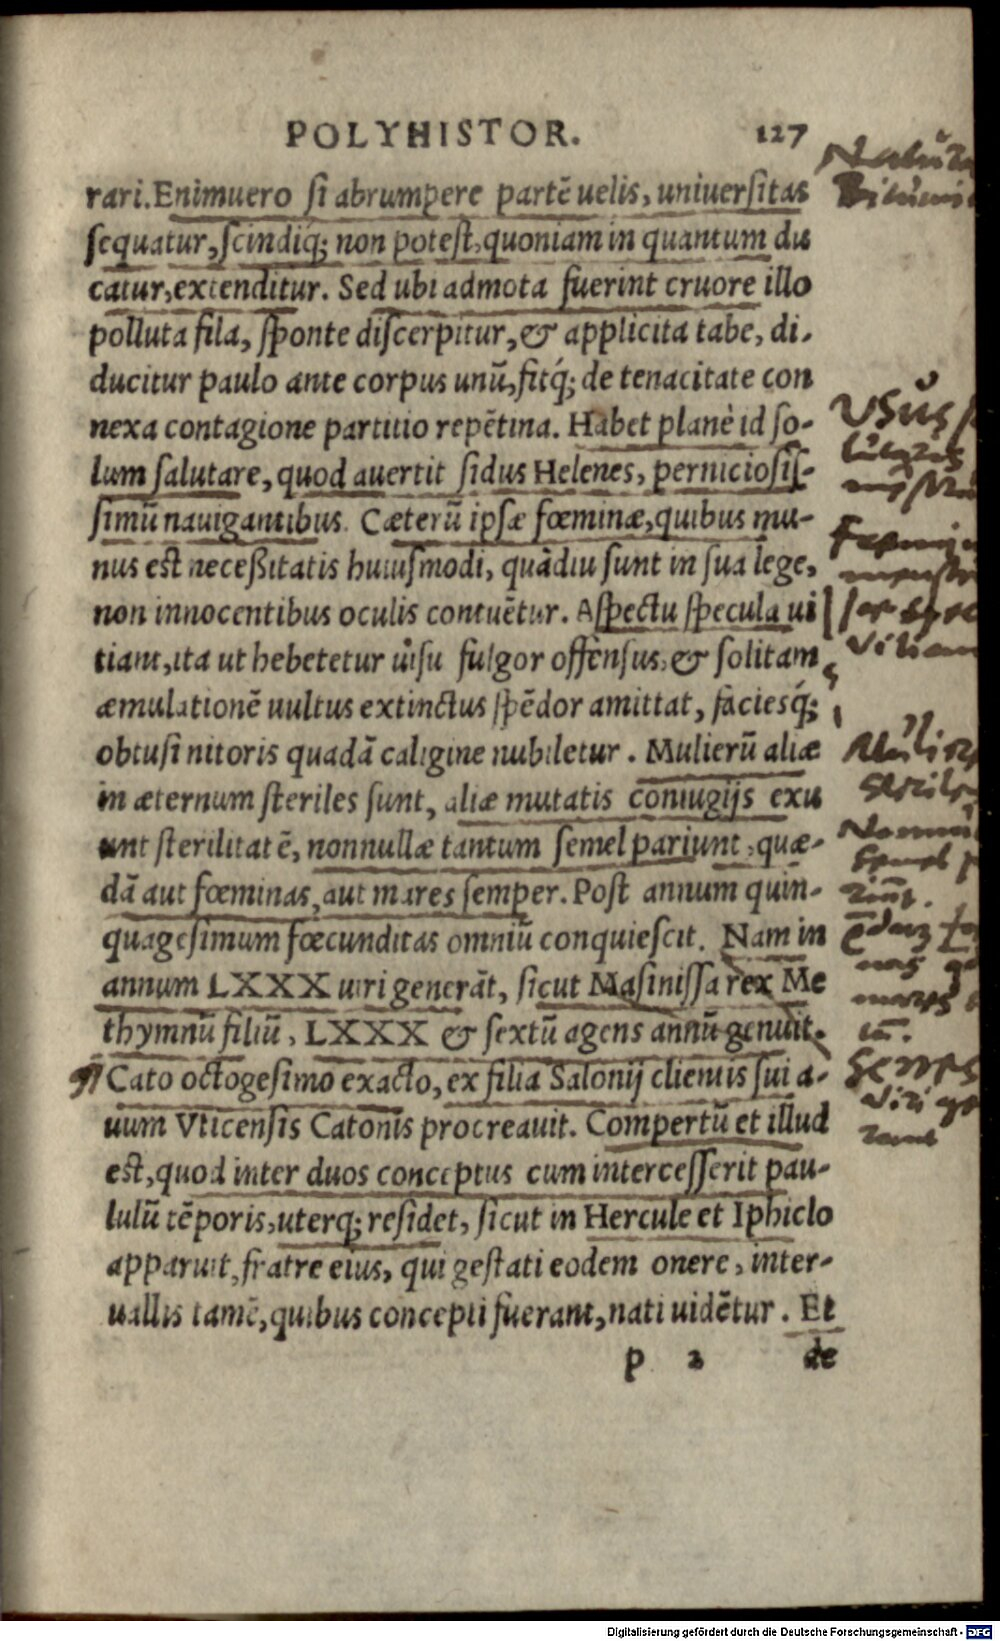 POLYHISTOR. 127
rari. Enimuero si abrumpere partē uelis, uniuersitas
sequatur, scindiq; non potest, quoniam in quantum du
catur, extenditur. Sed ubi admota fuerint cruore illo
polluta fila, sponte discerpitur, & applicita tabe, di-
ducitur paulo ante corpus unū, fitq́; de tenacitate con
nexa contagione partitio repētina. Habet planè id so-
lum salutare, quod auertit sidus Helenes, perniciosis-
simū nauigantibus. Cæterū ipsæ fœminæ, quibus mu-
nus est neceßitatis huiusmodi, quādiu sunt in sua lege,
non innocentibus oculis contuētur. Aspectu specula ui
tiant, ita ut hebetetur uisu fulgor offensus, & solitam
æmulationē uultus extinctus spēdor amittat, faciesq́;
obtusi nitoris quadā caligine nubiletur. Mulierū aliæ
in æternum steriles sunt, aliæ mutatis coniugijs exu
unt sterilitatē, nonnullæ tantum semel pariunt, quæ-
dā aut fœminas, aut mares semper. Post annum quin-
quagesimum fœcunditas omniū conquiescit. Nam in
annum LXXX uiri generāt, sicut Masinissa rex Me
thymnū filiū, LXXX & sextū agens annū genuit.
Cato octogesimo exacto, ex filia Salonij clientis sui a-
uum Vticensis Catonis procreauit. Compertū et illud
est, quod inter duos conceptus cum intercesserit pau-
lulū tēporis, uterq; residet, sicut in Hercule et Iphiclo
apparuit, fratre eius, qui gestati eodem onere, inter-
uallis tamē, quibus concepti fuerant, nati uidētur. Et
p 2 de
Semel
Digitalisierung gefördert durch die Deutsche Forschungsgemeinschaft - DFG